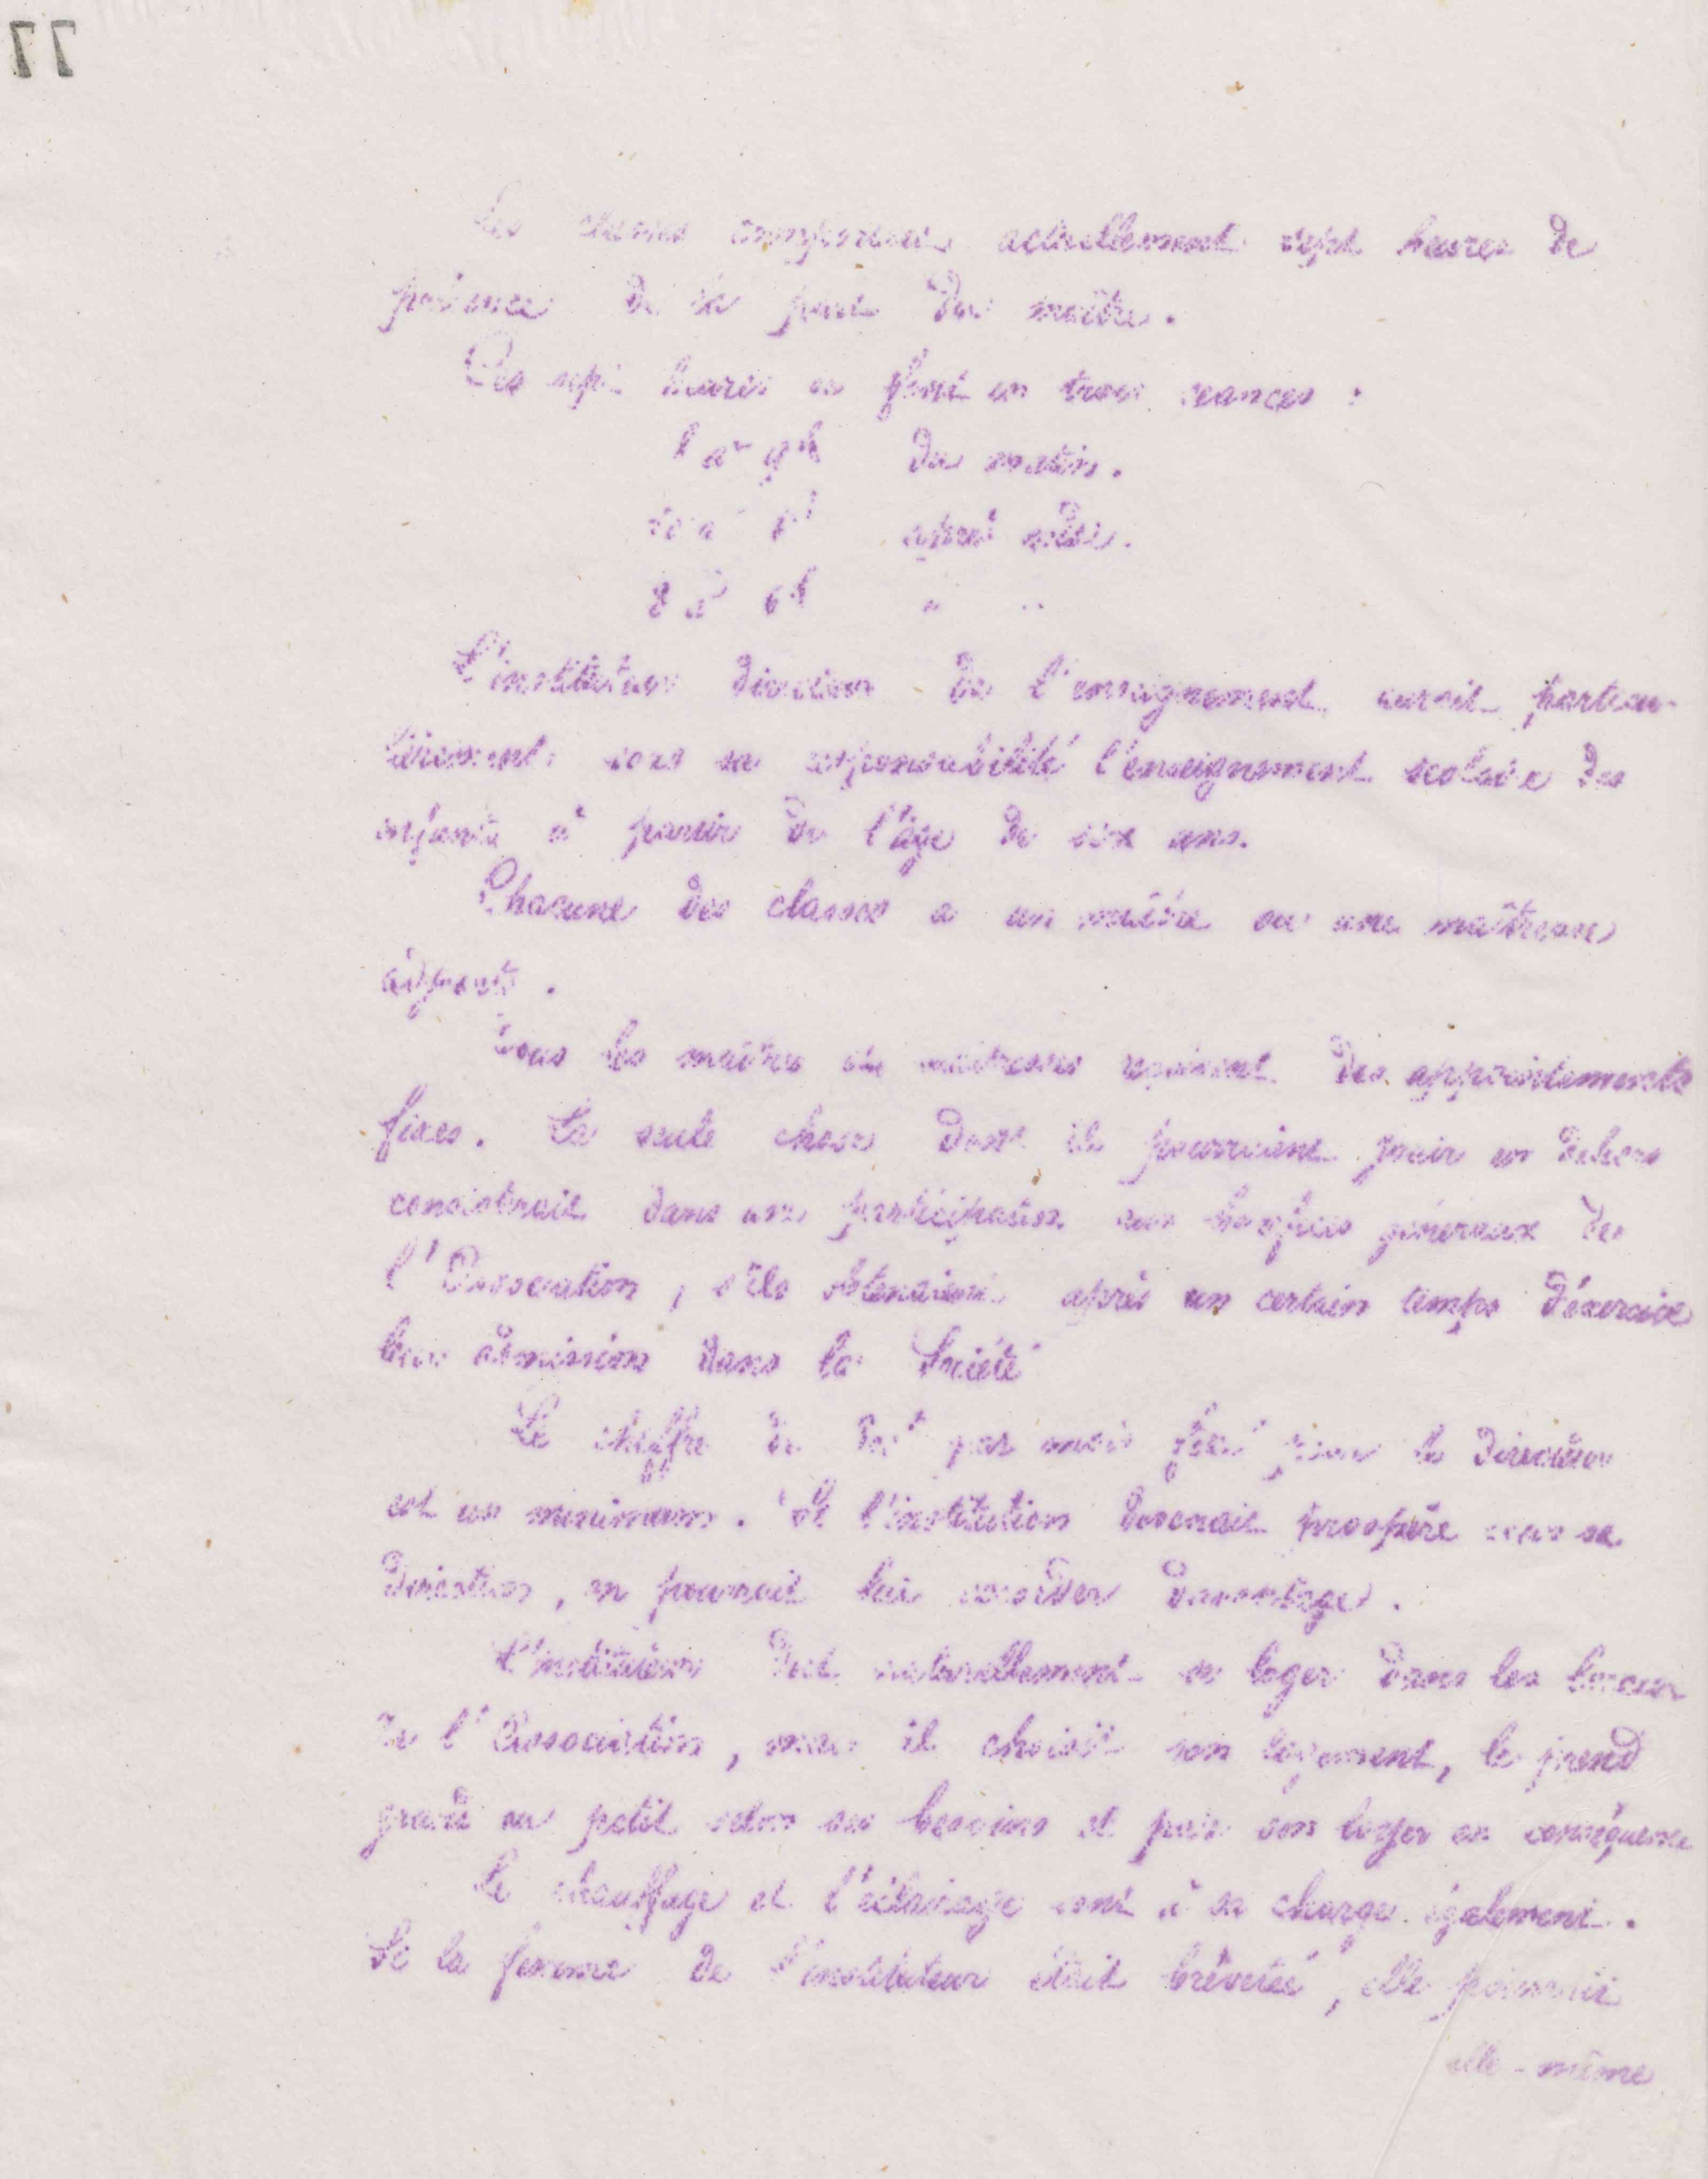 77
Les classes comportent actuellement sept heures de
présence de la part du maître.
Ces sept heures se font en trois séances :
à 9h du matin.
après midi.
à 6h " "
L'instituteur directeur de l'enseignement aurait particu-
lièrement sous sa responsabilité l'enseignement scolaire des
enfants à partir de l'âge de six ans.
Chacune des classes a un maître ou une maîtresse
adjoints.
Tous les maîtres ou maîtresses reçoivent des appointements
fixes. La seule chose dont ils pourraient jouir en dehors
consisterait dans une participation aux bénéfices généraux de
l'Association, s'ils obtenaient après un certain temps d'exercice
leur admission dans la Société
Le chiffre de par mois fixé pour le directeur
est un minimum. Si l'institution devenait prospère sous sa
direction, on pourrait lui accorder davantage.
L'instituteur doit naturellement se loger dans les locaux
de l'Association, mais il choisit son logement, le prend
grand ou petit selon ses besoins et paie son loyer en conséquence
Le chauffage et l'éclairage sont à sa charge également.
Si la femme de l'instituteur était brévetée, elle pourrait
elle-même